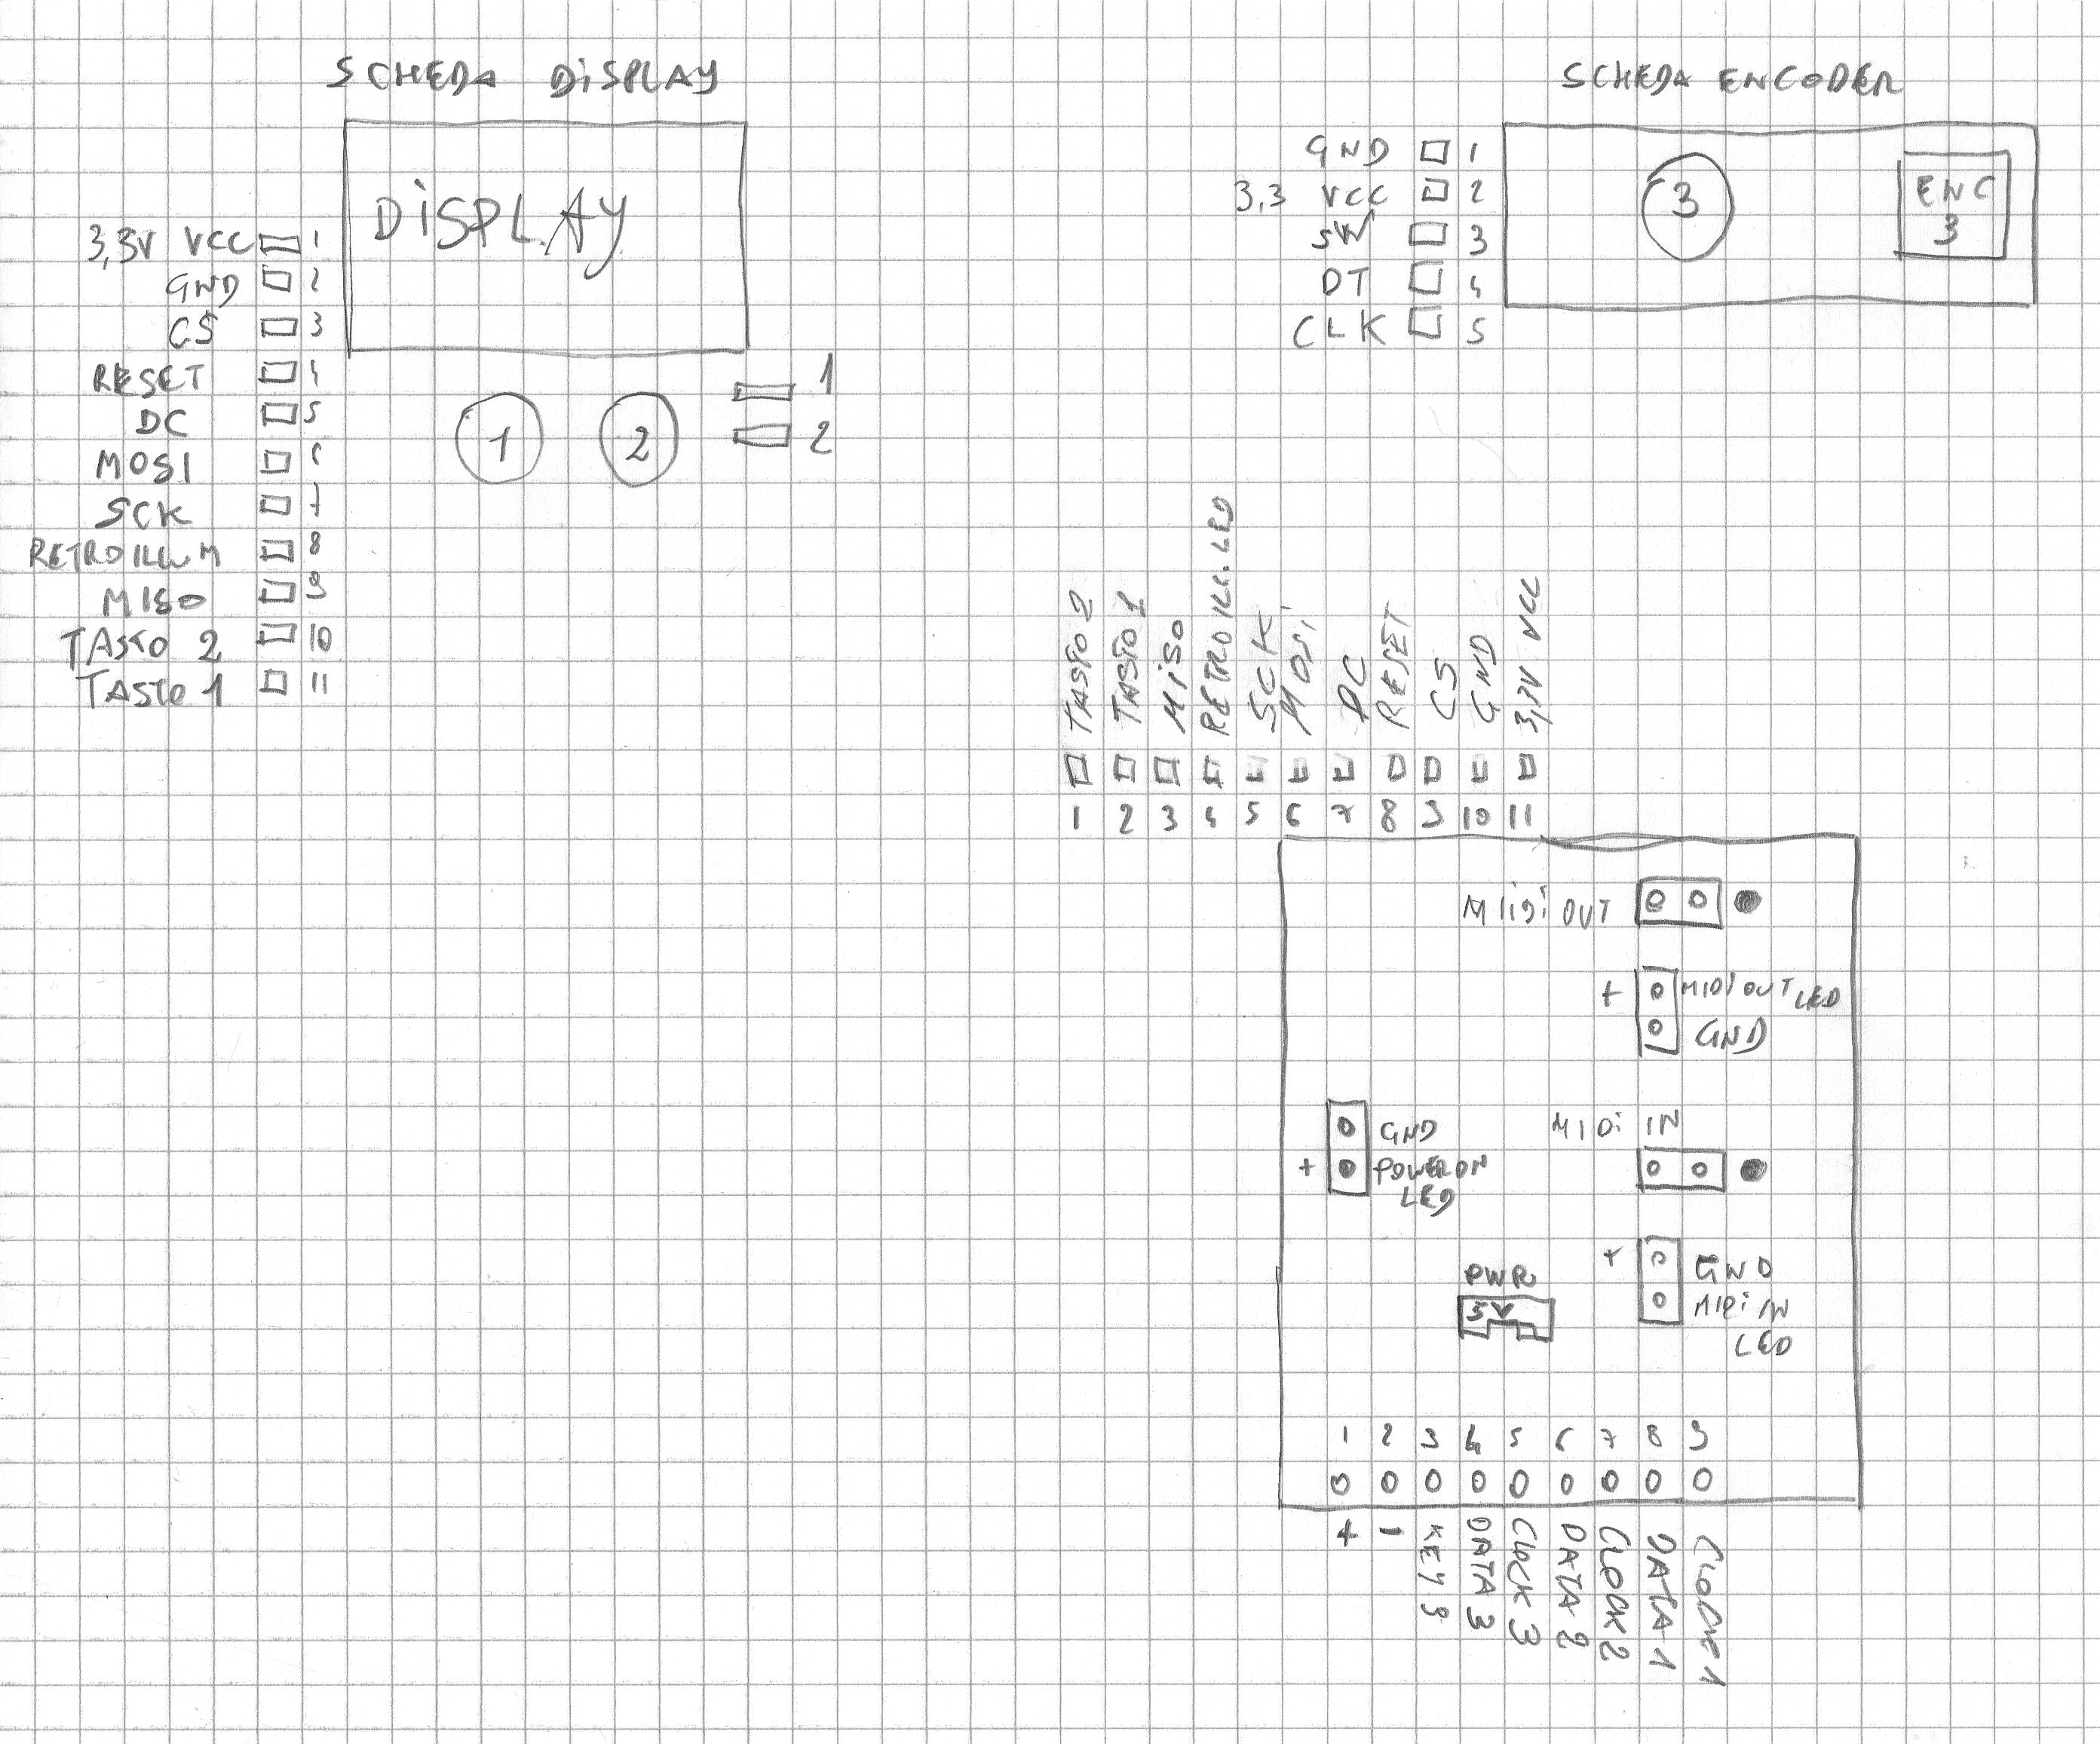 SCHEDA DISPLAY
DISPLAY
3,3V VCC 1
GND 2
CS 3
RESET 4
DC 5
MOSI 6
SCK 7
RETROILLUM 8
MISO 9
TASTO 2 10
TASTO 1 11
1 2
1
2
SCHEDA ENCODER
GND 1
3,3 VCC 2
SW 3
DT 4
CLK 5
3
ENC
3
TASTO 2
TASTO 1
MISO
RETROILL. LED
SCK
MOSI
DC
RESET
CS
GND
3,3V VCC
1 2 3 4 5 6 7 8 9 10 11
MIDI OUT
+ MIDI OUT LED
GND
GND
+ POWER ON
LED
MIDI IN
PWR
5V
+ GND
MIDI IN
LED
1 2 3 4 5 6 7 8 9
+
-
KEY 3
DATA 3
CLOCK 3
DATA 2
CLOCK 2
DATA 1
CLOCK 1